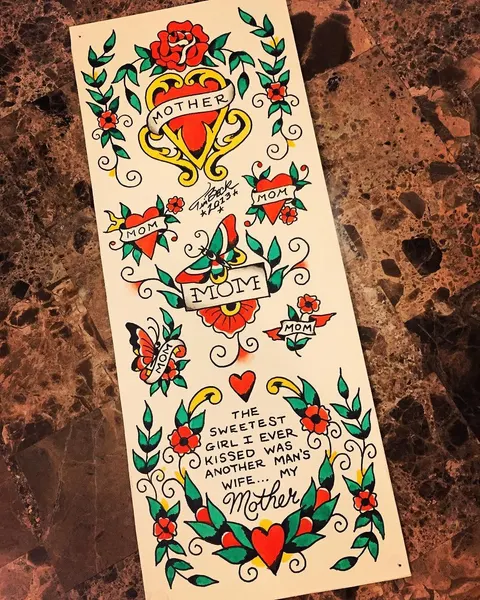 MOTHER
Tim Beck
*2013*
MOM
MOM
MOM
MOM
MOM
THE
SWEETEST
GIRL I EVER
KISSED WAS
ANOTHER MAN'S
WIFE... MY
Mother